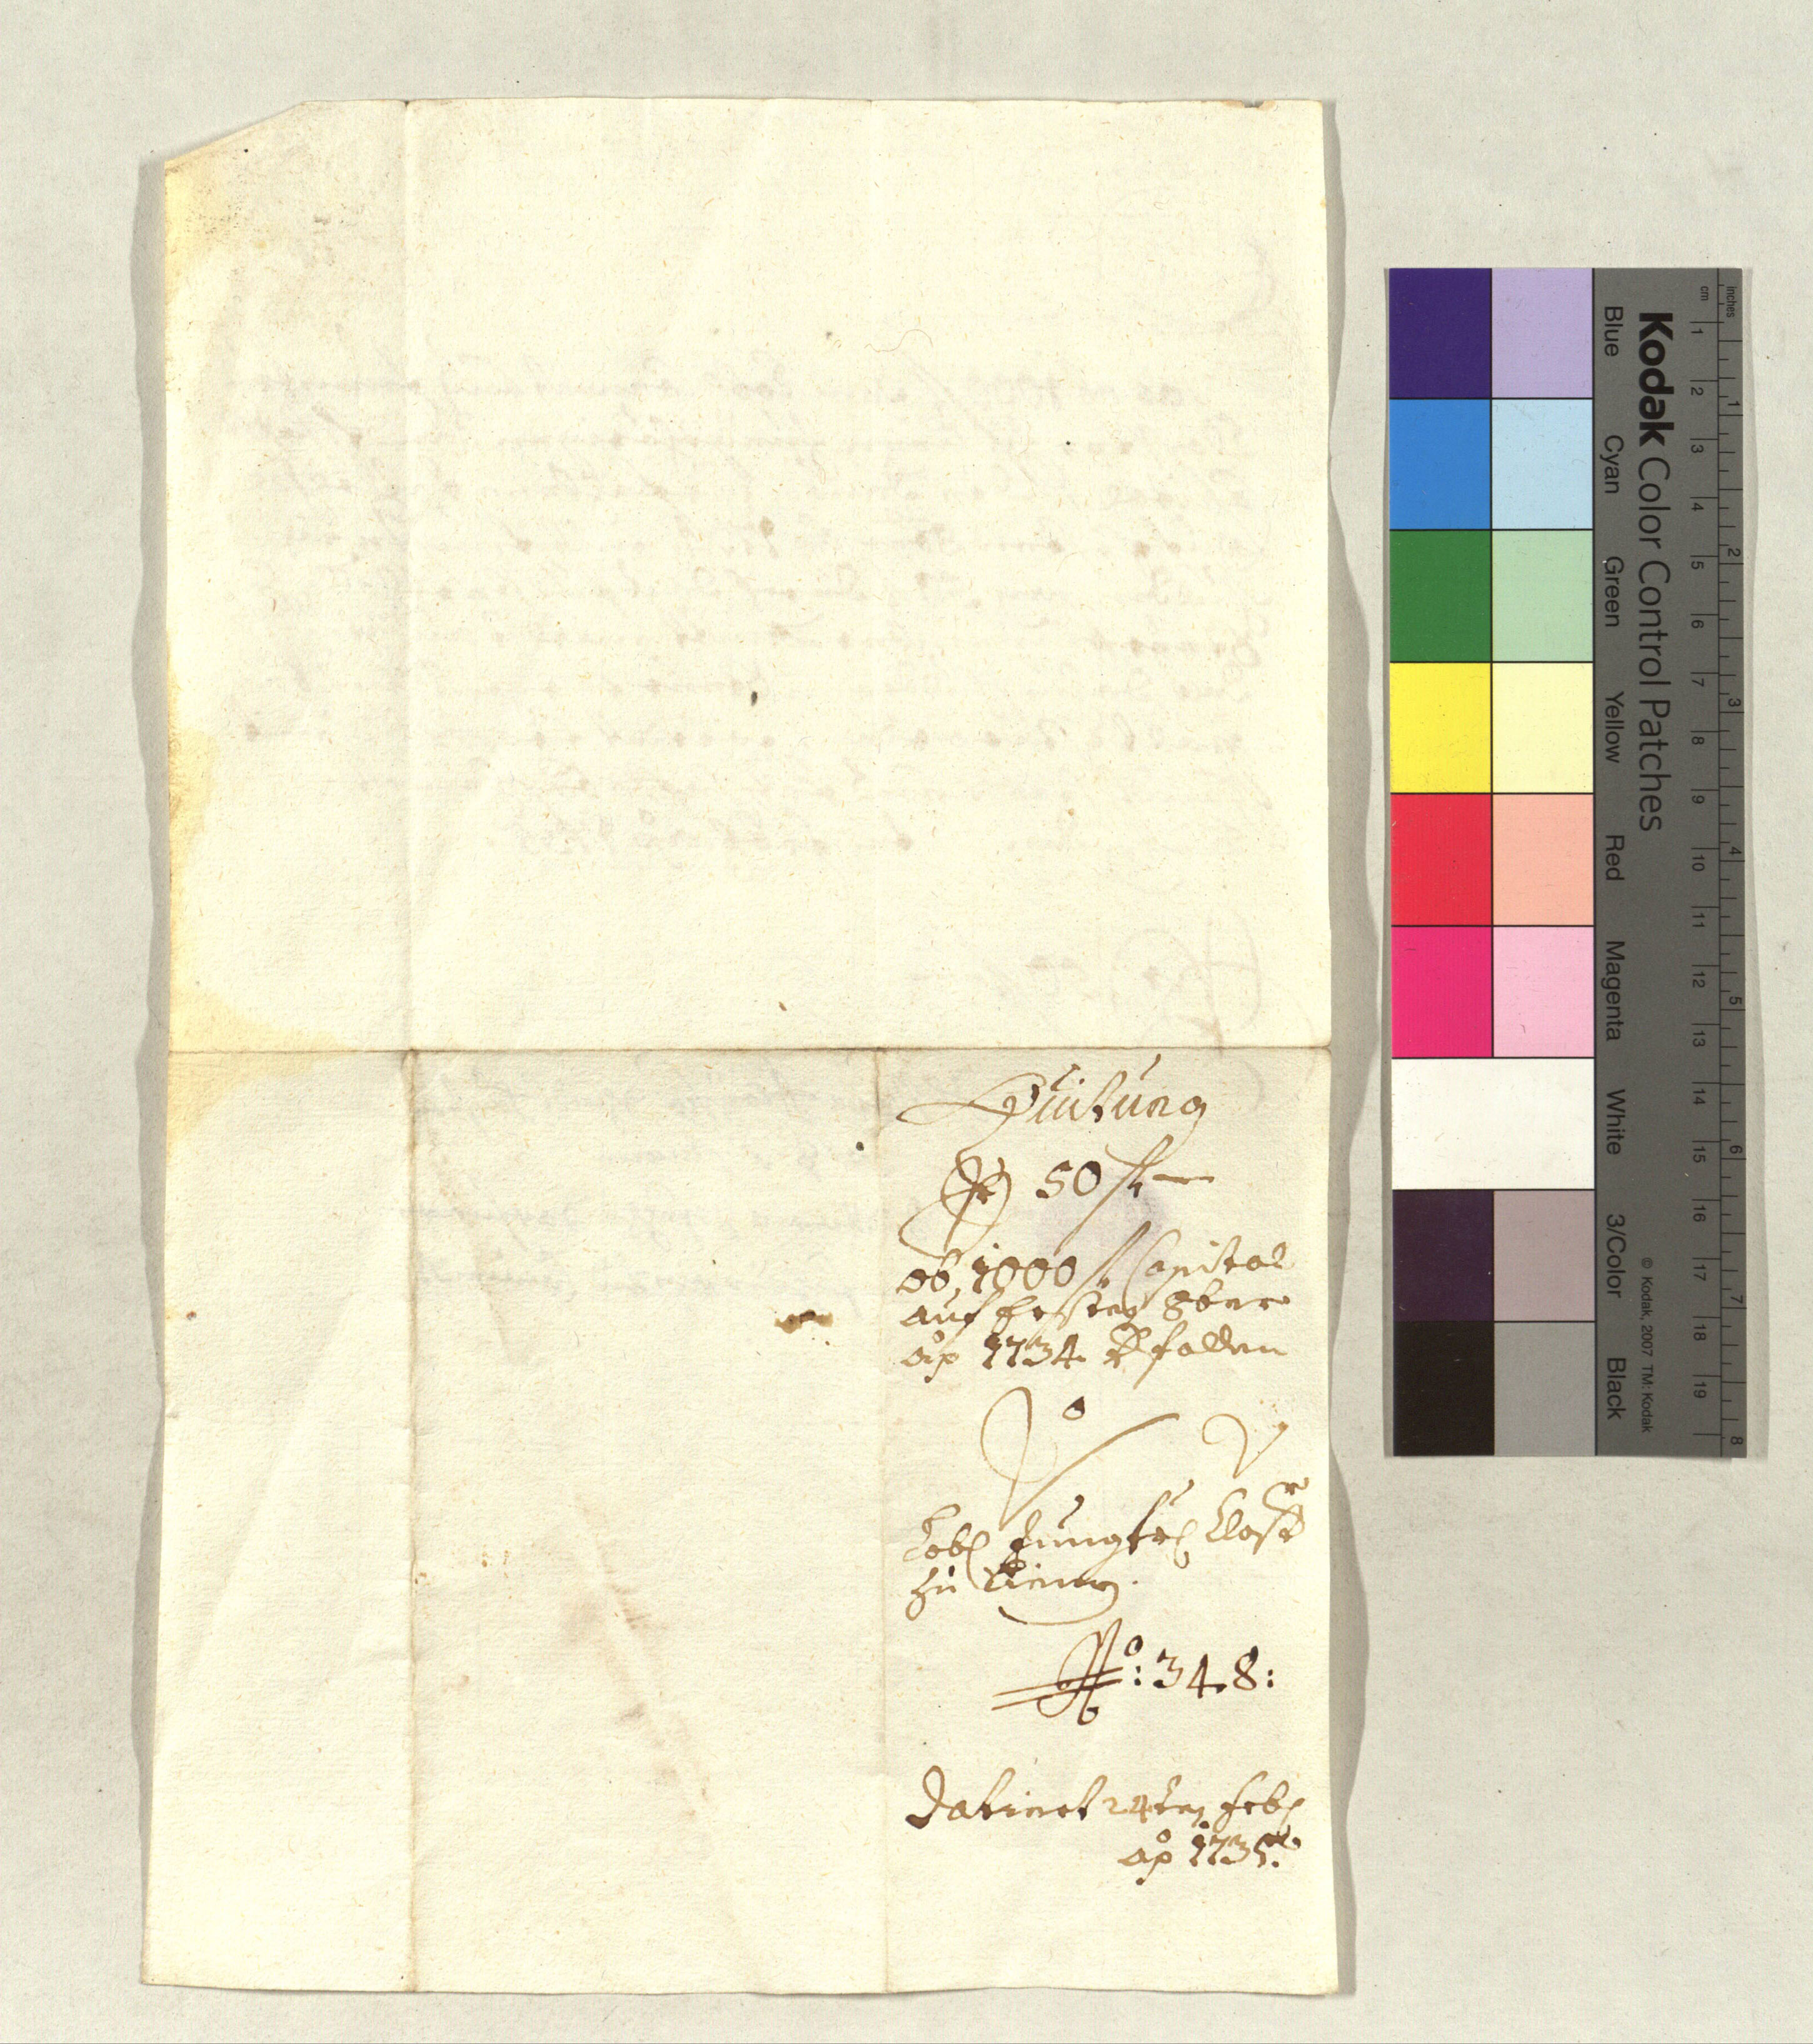 Quittung
Per 50 fl
ob 1000 fl Capital
auf 8ber
aō 1734 verfallen
Lobl Jungfrl Closter
zu
No: 348:
Datiret 24ten Febr
aō 1735.
Kodak Color Control Patches
Blue Cyan Green Yellow Red Magenta White 3/Color Black
© Kodak, 2007 TM: Kodak
cm 1 2 3 4 5 6 7 8 9 10 11 12 13 14 15 16 17 18 19
inches 1 2 3 4 5 6 7 8